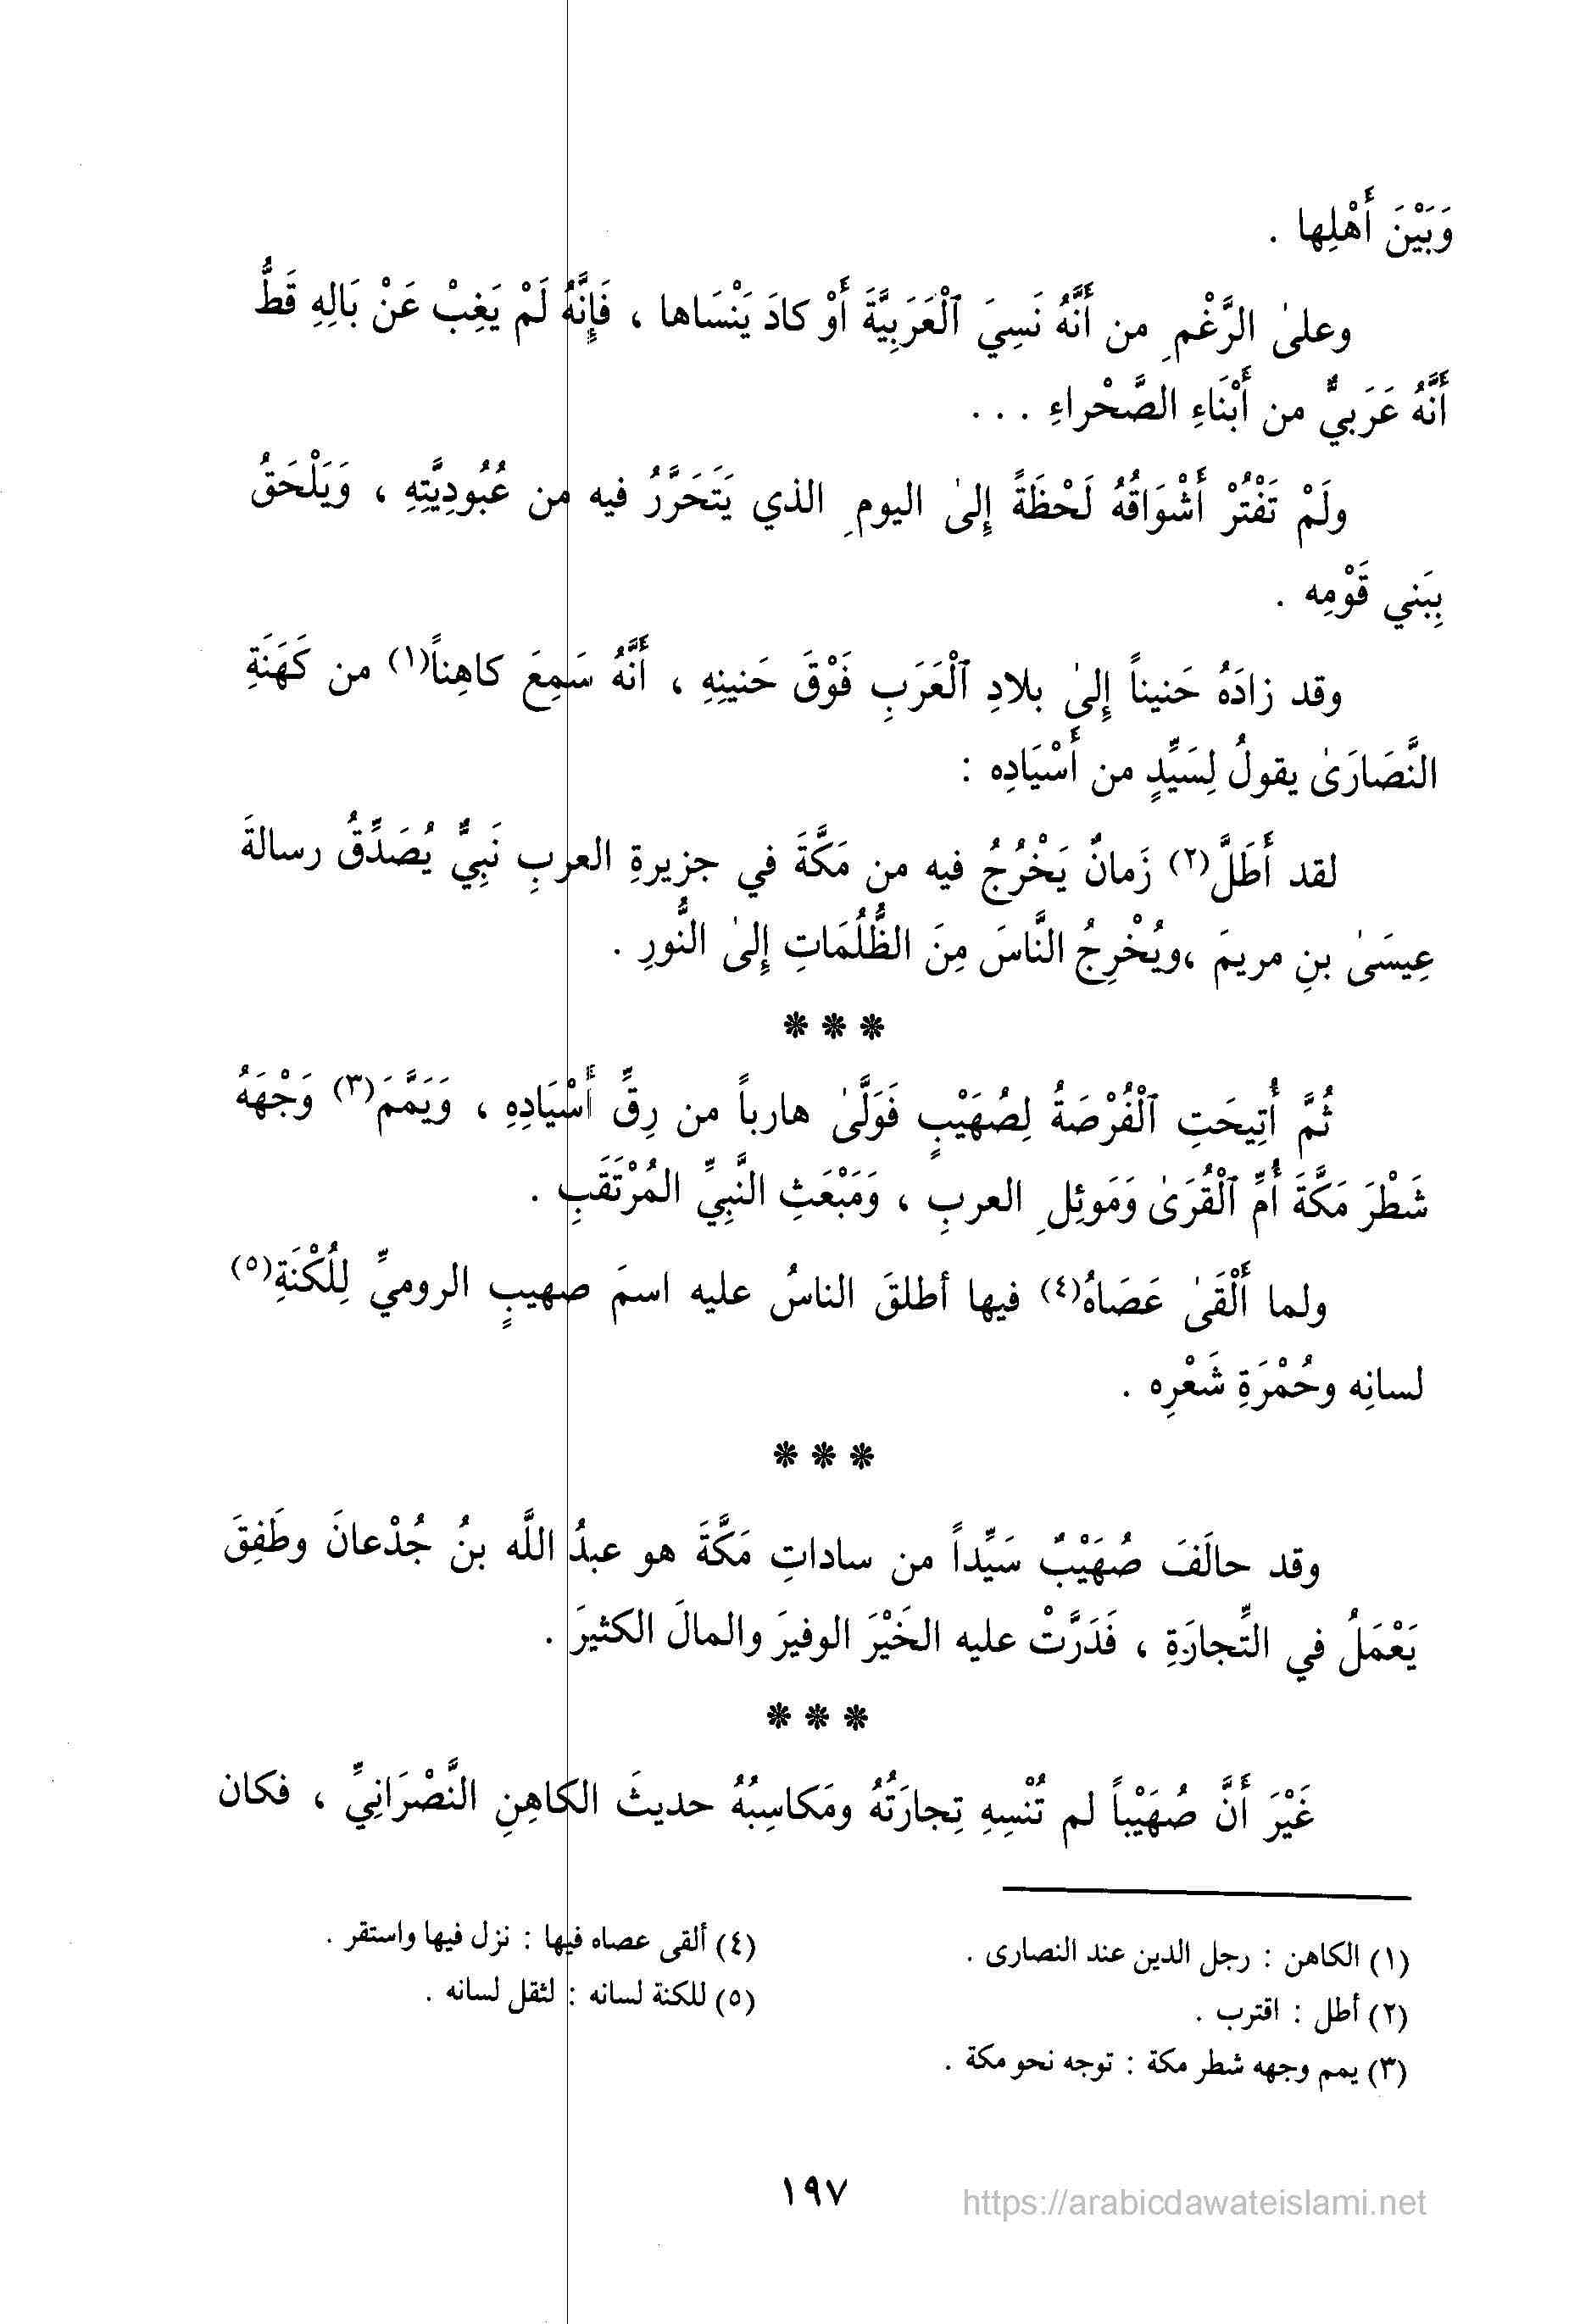 وَبَيْنَ أَهْلِها .
وعلىٰ الرَّغْمِ من أَنَّهُ نَسِيَ ٱلْعَرَبِيَّةَ أَوْ كادَ يَنْسَاها ، فَإِنَّهُ لَمْ يَغِبْ عَنْ بَالِهِ قَطُّ
أَنَّهُ عَرَبيٌّ من أَبْنَاءِ الصَّحْراءِ . . .
ولَمْ تَفْتُرْ أَشْوَاقُهُ لَحْظَةً إِلىٰ اليومِ الذي يَتَحَرَّرُ فيه من عُبُودِيَّتِهِ ، وَيَلْحَقُ
بِبَني قَوْمِه .
وقد زادَهُ حَنيناً إِلىٰ بلادِ ٱلْعَرَبِ فَوْقَ حَنينِهِ ، أَنَّهُ سَمِعَ كاهِناً(١) من كَهَنَةِ
النَّصَارَىٰ يقولُ لِسَيِّدٍ من أَسْيَادِه :
لقد أَطَلَّ(٢) زَمانٌ يَخْرُجُ فيه من مَكَّةَ في جزيرةِ العربِ نَبِيٌّ يُصَدِّقُ رسالةَ
عِيسَىٰ بنِ مريمَ ،ويُخْرِجُ النَّاسَ مِنَ الظُّلُمَاتِ إِلىٰ النُّورِ .
* * *
ثُمَّ أُتِيحَتِ ٱلْفُرْصَةُ لِصُهَيْبٍ فَوَلَّىٰ هارباً من رِقِّ أَسْيَادِهِ ، وَيَمَّمَ(٣) وَجْهَهُ
شَطْرَ مَكَّةَ أُمِّ ٱلْقُرَىٰ وَمَوئِلِ العربِ ، وَمَبْعَثِ النَّبِيِّ المُرْتَقَبِ .
ولما أَلْقَىٰ عَصَاهُ(٤) فيها أطلقَ الناسُ عليه اسمَ صهيبٍ الروميِّ لِلُكْنَةِ(٥)
لسانِه وحُمْرَةِ شَعْرِه .
* * *
وقد حالَفَ صُهَيْبٌ سَيِّداً من ساداتِ مَكَّةَ هو عبدُ اللَّه بنُ جُدْعانَ وطَفِقَ
يَعْمَلُ في التِّجارَةِ ، فَدَرَّتْ عليه الخَيْرَ الوفيرَ والمالَ الكثيرَ .
* * *
غَيْرَ أَنَّ صُهَيْباً لم تُنْسِهِ تِجارَتُهُ ومَكاسِبُهُ حديثَ الكاهِنِ النَّصْرَانِيِّ ، فكان
(١) الكاهن : رجل الدين عند النصارى .
(٢) أطل : اقترب .
(٣) يمم وجهه شطر مكة : توجه نحو مكة .
(٤) ألقى عصاه فيها : نزل فيها واستقر .
(٥) للكنة لسانه : لثقل لسانه .
١٩٧
https://arabicdawateislami.net